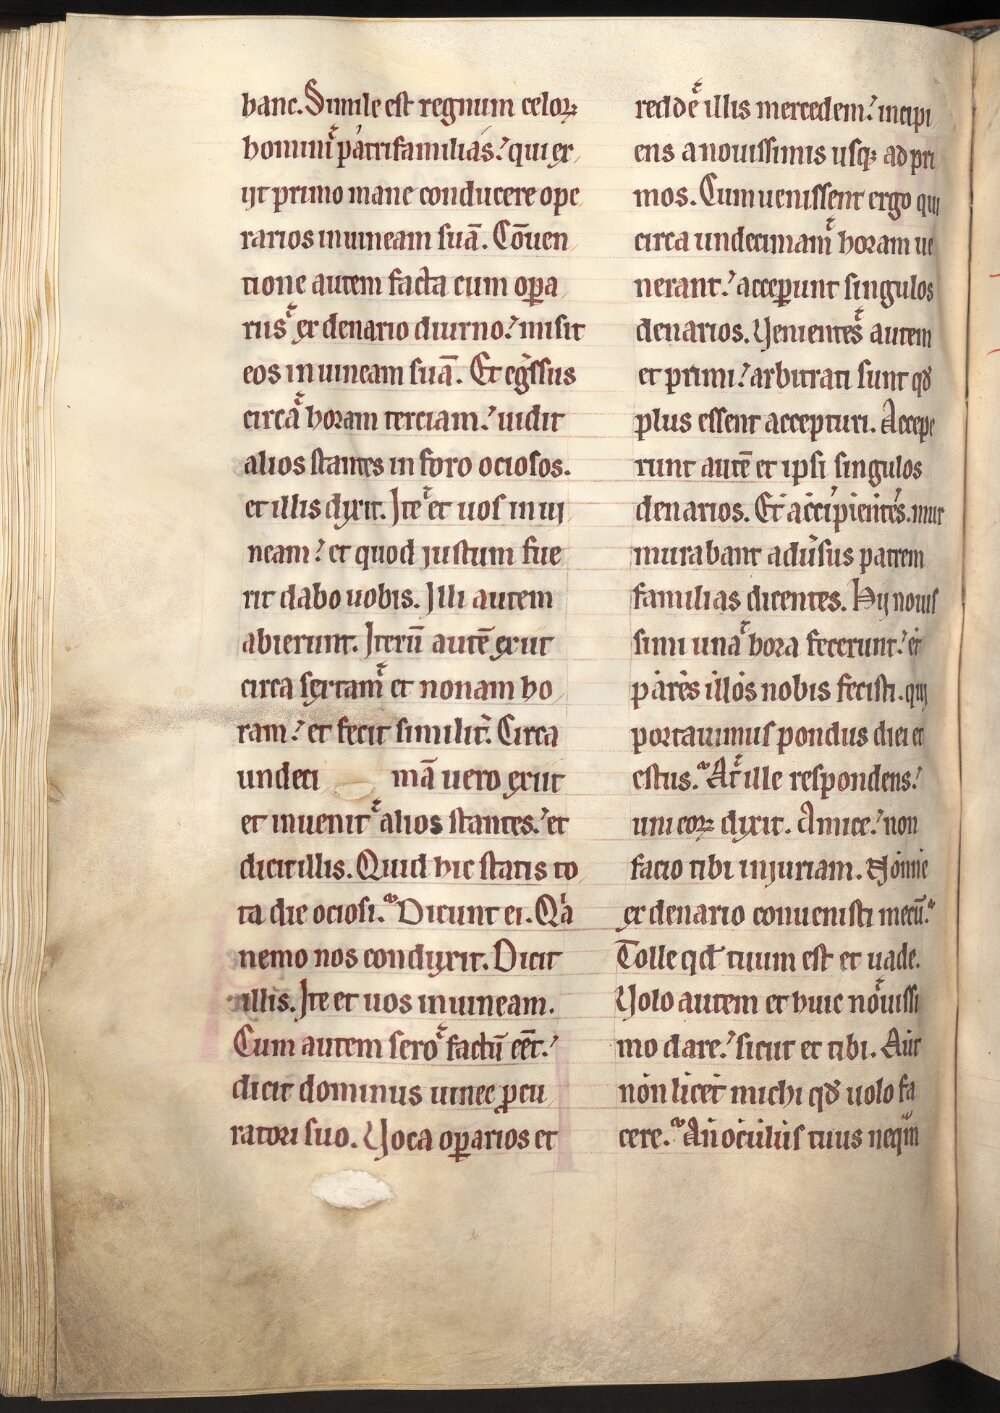 hanc. Simile est regnum celoꝝ
homini patrifamilias. qui ex
ijt primo mane conducere ope
rarios in uineam suā. Cōuen
tione autem facta cum oꝑa
riis ex denario diurno. misit
eos in uineam suā. Et eg̃ssus
circa horam terciam. uidit
alios stantes in foro ociosos.
et illis dixit. Ite et uos in ui
neam. et quod justum fue
rit dabo uobis. Illi autem
abierunt. Iterū autē exiit
circa sextam et nonam ho
ram. et fecit similit̃. Circa
undeci mā uero exiit
et inuenit alios stantes. et
dicit illis. Quid hic statis to
ta die ociosi. Dicunt ei. Qͣa
nemo nos conduxit. Dicit
illis. Ite et uos in uineam.
Cum autem sero factū eēt.
dicit dominus uinee ꝓcu
ratori suo. Uoca oꝑarios et
redde illis mercedem. incipi
ens a nouissimis usqꝫ ad pri
mos. Cum uenissent ergo qui
circa undecimam horam ue
nerant. acceꝑunt singulos
denarios. Uenientes autem
et primi. arbitrati sunt qđ
plus essent accepturi. Accepe
runt autē et ipsi singulos
denarios. Et accipientes. mur
murabant adũsus patrem
familias dicentes. Hij nouis
simi una hora fecerunt. et
pares illos nobis fecisti. qui
portauimus pondus diei et
estus. At ille respondens.
uni eoꝝ dixit. Amice. non
facio tibi injuriam. Nonne
ex denario conuenisti mecū.
Tolle qđ tuum est et uade.
Uolo autem et huic nouissi
mo dare. sicut et tibi. Aut
non licet michi qđ uolo fa
cere. An oculus tuus neqͣm